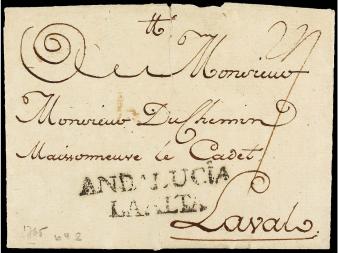 A Monsieur
Monsieur DuChemin
Maisonneuve le Cadet
ANDALUCIA
LA ALTA
Laval
1765